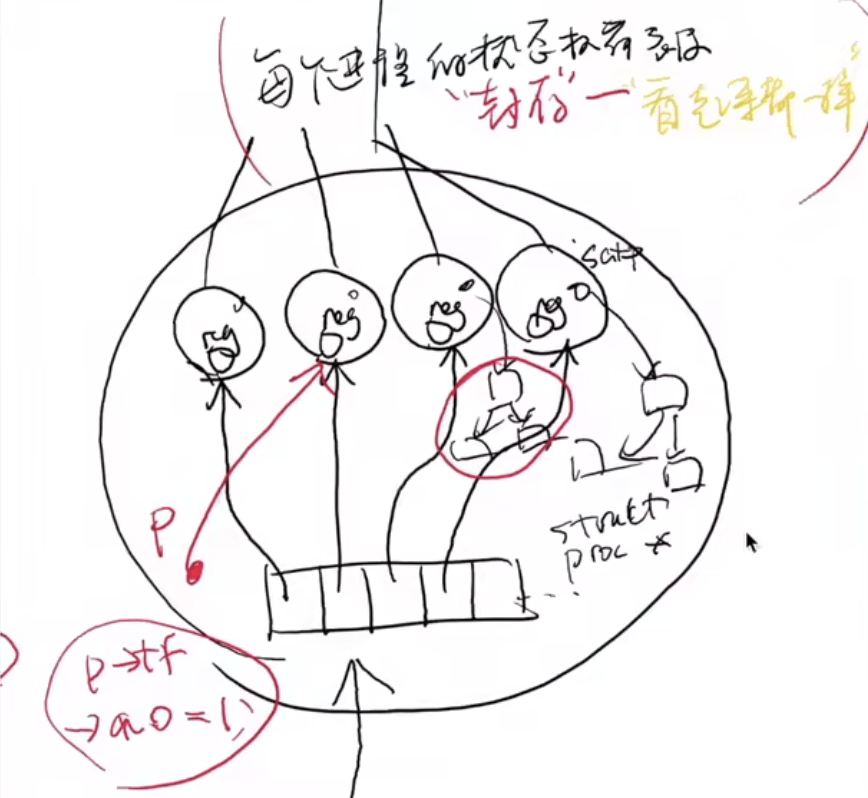 每个进程的状态都被
"封存"—"看起来都一样"
satp
reg reg reg reg
P
struct
proc *
...
P→tf
→a0 = 1;